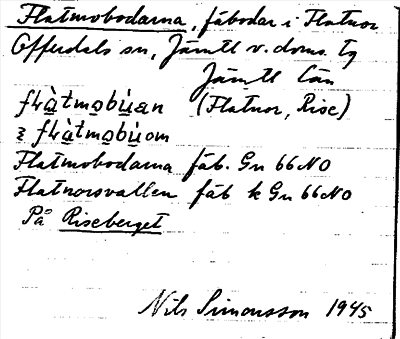 Flatmobodarna, fäbodar i Flatnor
Offerdals sn, Jämtl v. doms. tg
Jämtl län
(Flatnor, Rise)
Flatmobodarna fäb. Gn 66 NO
Flatnorsvallen fäb k Gn 66 NO
På Riseberget
Nils Simonsson 1945